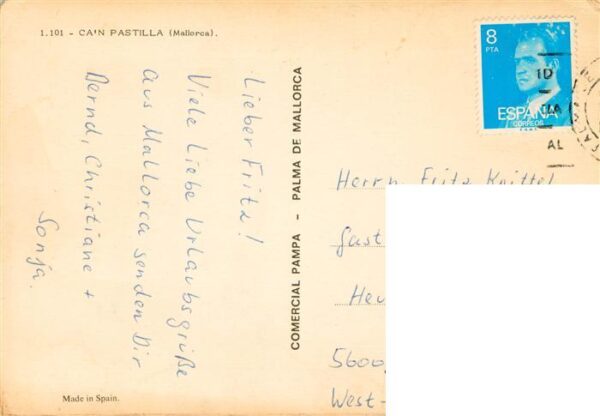 1.101 - CA'N PASTILLA (Mallorca).
Lieber Fritz!
Viele liebe Urlaubsgrüße
aus Mallorca senden Dir
Bernd, Christiane +
Sonja.
Made in Spain.
COMERCIAL PAMPA - PALMA DE MALLORCA
8
PTA
ESPAÑA
CORREOS
ID
MA
AL
Herrn Fritz Knittel
Gast
Heu
5600
West-